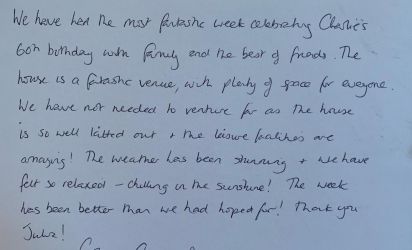 We have had the most fantastic week celebrating Charlie's
60th birthday with family and the best of friends. The
house is a fantastic venue, with plenty of space for everyone.
We have not needed to venture far as the house
is so well kitted out + the leisure facilities are
amazing! The weather has been stunning + we have
felt so relaxed - chilling in the sunshine! The week
has been better than we had hoped for! Thank you